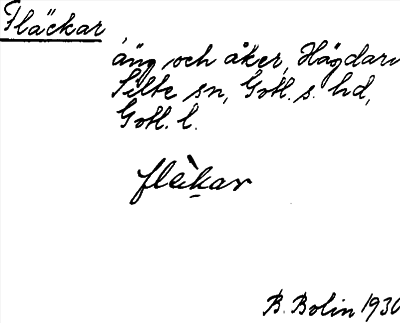 Fläckar
äng och åker, Hägdarv
Silte sn, Gotl. s. hd,
Gotl. l.
flèkar
B. Bolin 1930